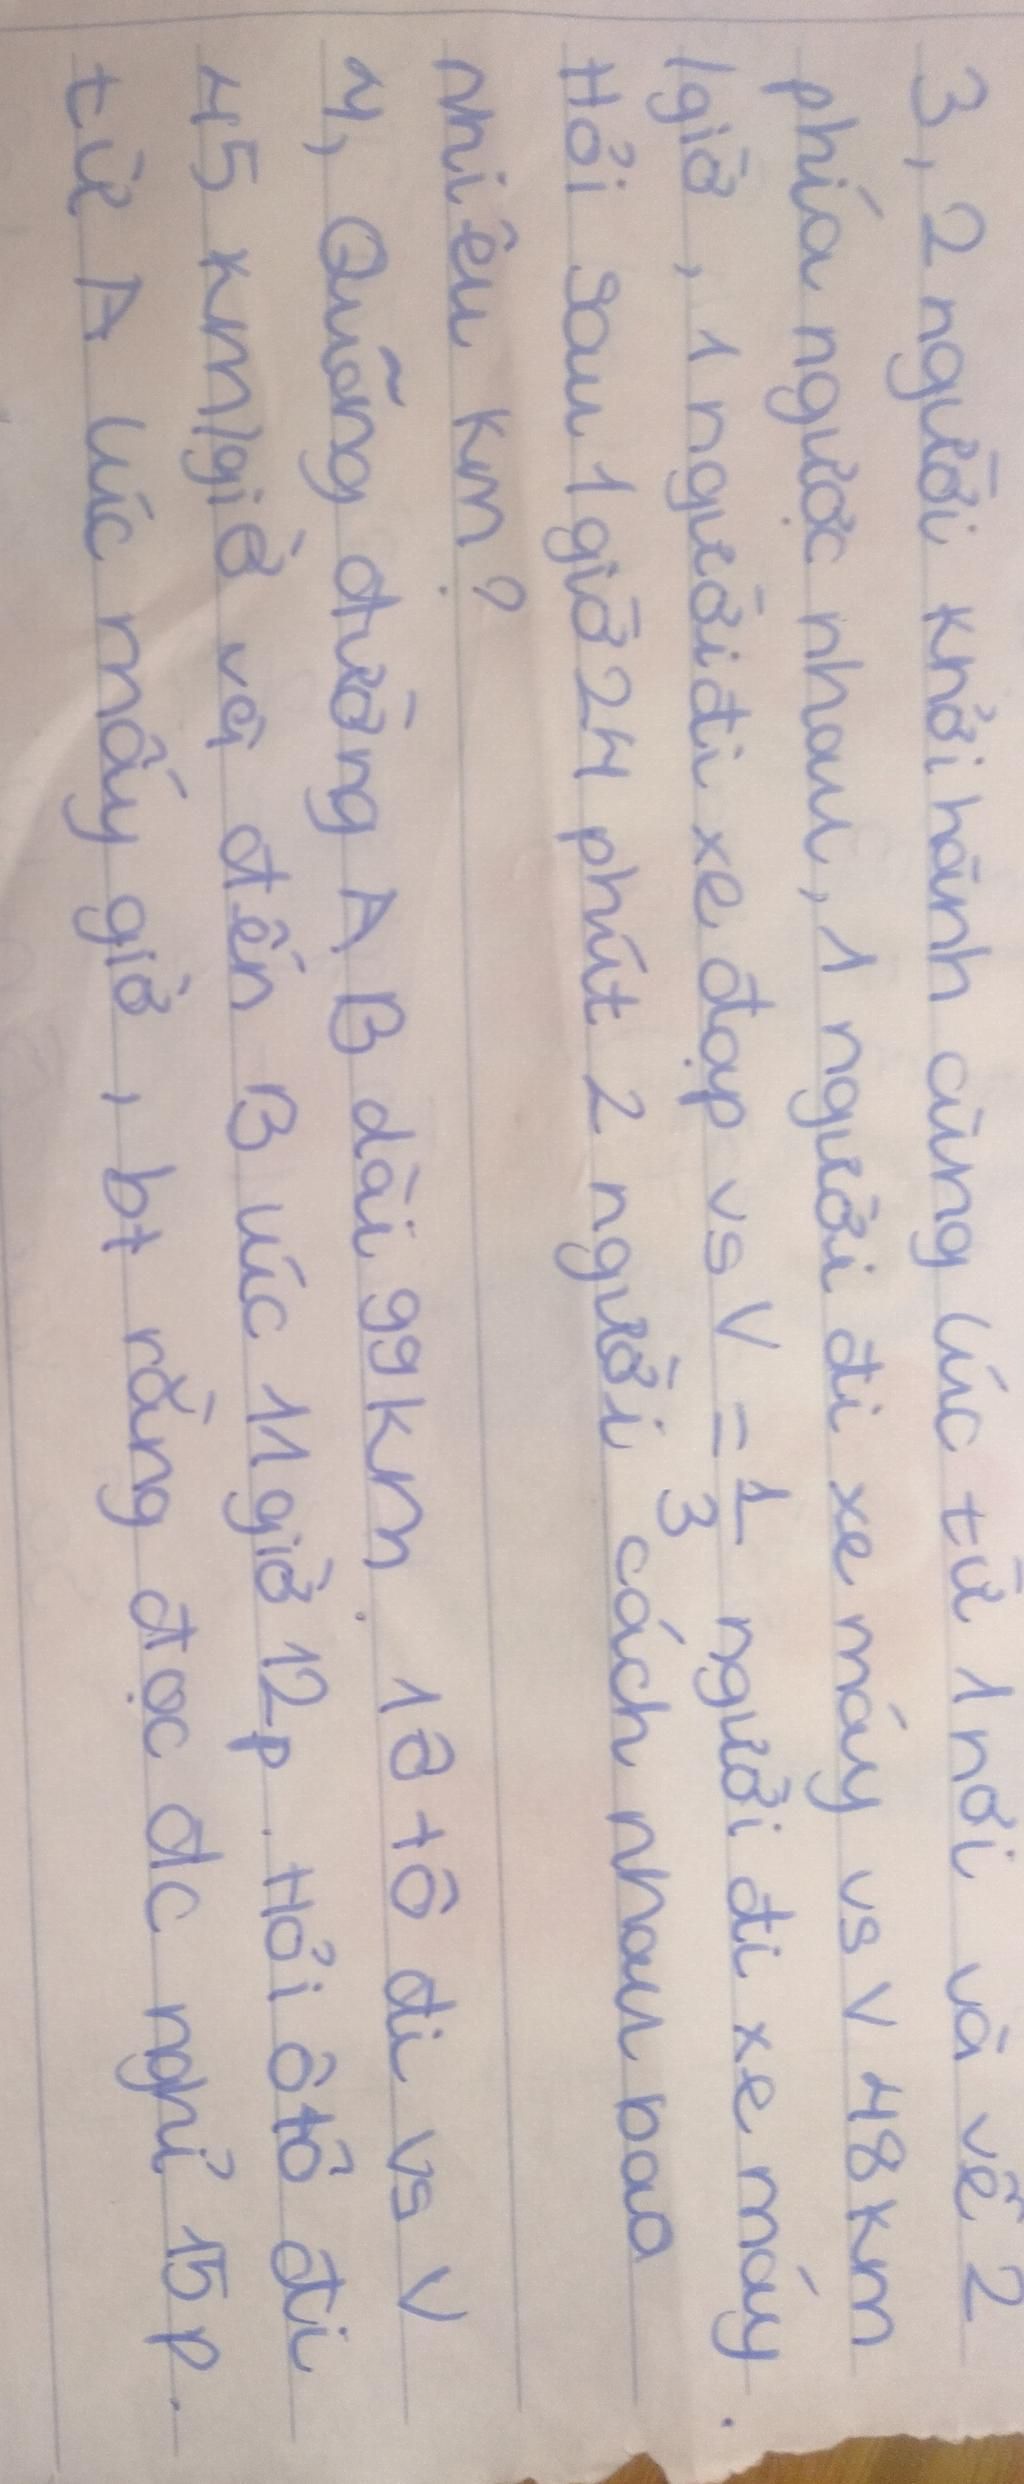 3, 2 người khởi hành cùng lúc từ 1 nơi và về 2
phía ngược nhau, 1 người đi xe máy vs V 48km
/giờ, 1 người đi xe đạp vs V = 1/3 người đi xe máy.
Hỏi sau 1 giờ 24 phút 2 người cách nhau bao
nhiêu km?
4, Quãng đường AB dài 99km. 1 ô tô đi vs V
45 km/giờ và đến B lúc 11 giờ 12p. Hỏi ôtô đi
từ A lúc mấy giờ, bt rằng dọc đc nghỉ 15p.